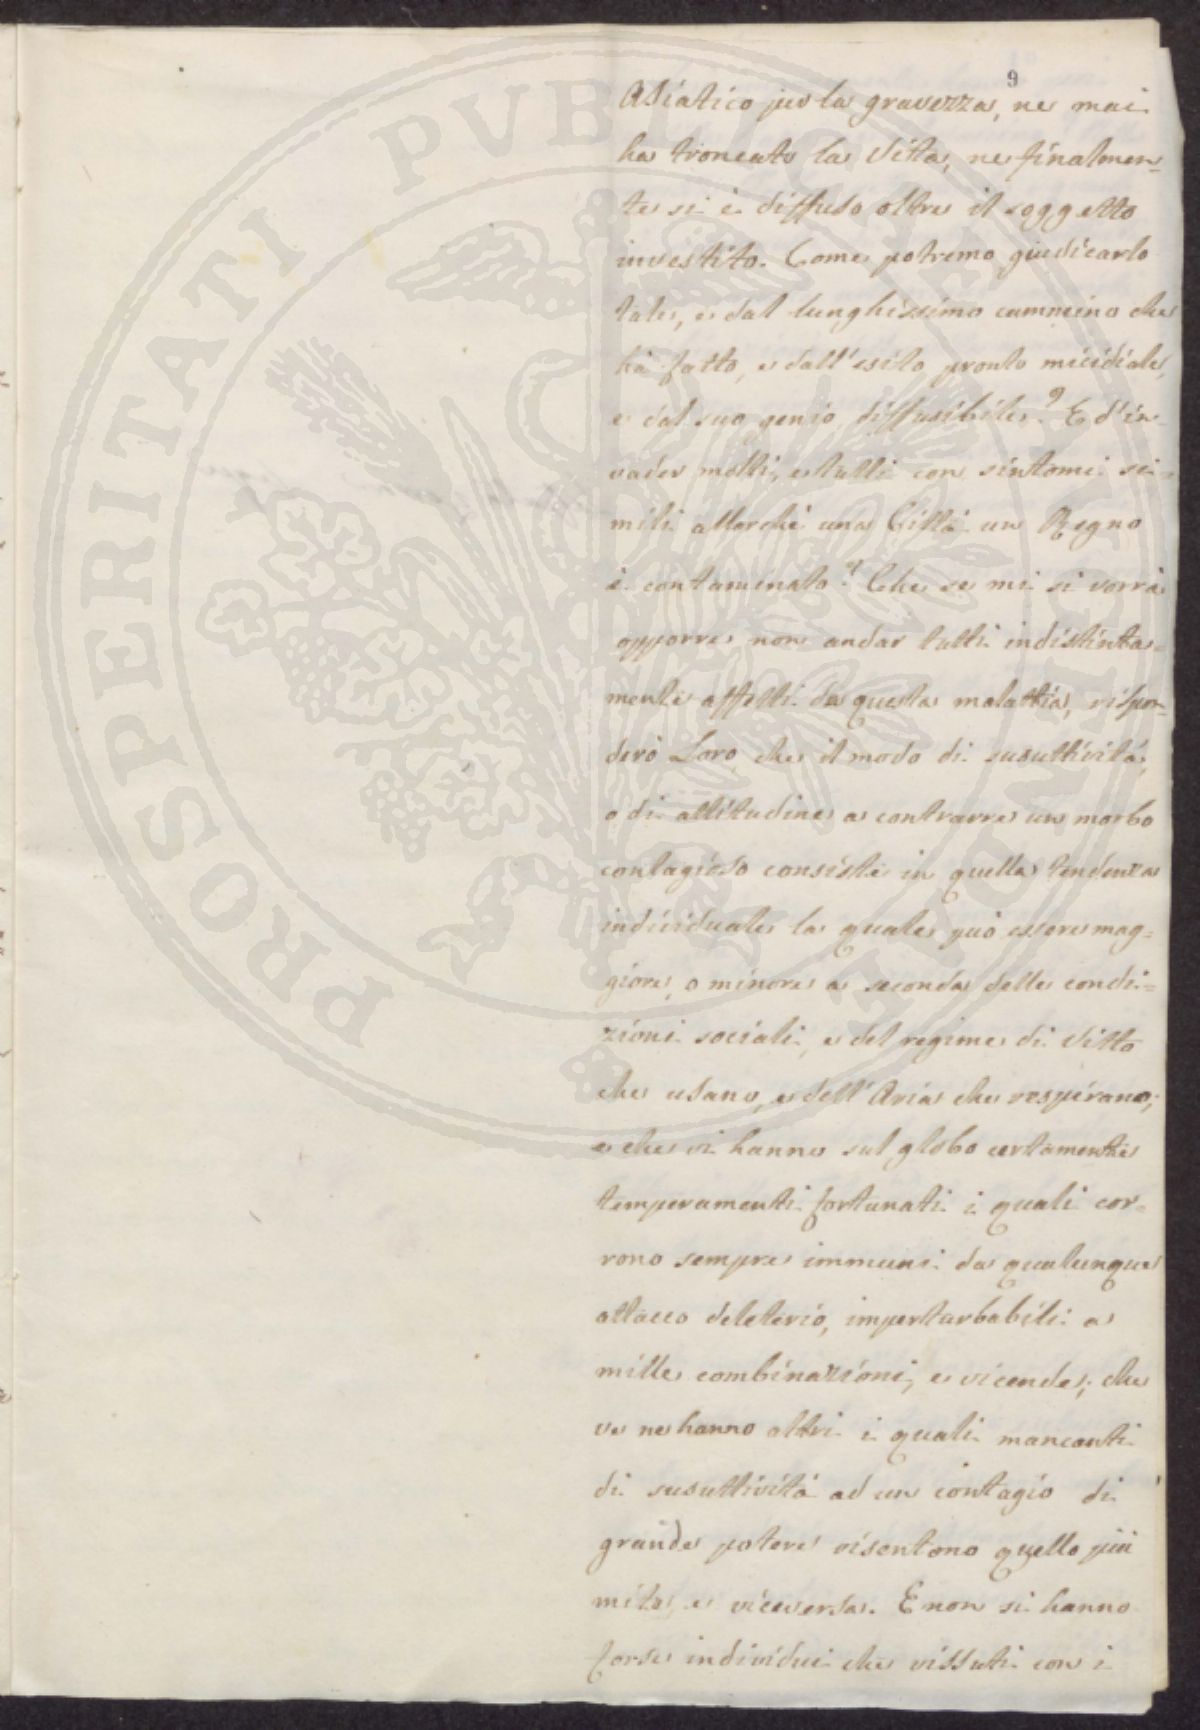 9
Asiatico per la gravezza, ne mai
ha troncato la vita, ne finalmen=
te si è diffuso oltre il soggetto
investito. Come potremo giudicarlo
tale, e dal lunghissimo cammino che
hà fatto, e dall'esito pronto micidiale,
e dal suo genio diffusibile? E d'in=
vader molti, e tutti con sintomi si=
mili allorchè una Città un Regno
è contaminato? Che se mi si vorrà
opporre, non andar tutti indistinta=
mente affetti da questa malattia, rispon=
derò Loro, che il modo di suscettività,
o di attitudine a contrarre un morbo
contagioso consiste in quella tendenza
individuale la quale può essere mag=
giore, o minore a seconda delle condi=
zioni sociali, e del regime di vitto
che usano, e dell'Aria che respirano;
e che vi hanno sul globo certamente
temperamenti fortunati i quali cor=
rono sempre immuni da qualunque
attacco deleterio, imperturbabili a
mille combinazioni, e vicende; che
ve ne hanno altri i quali mancanti
di suscettività ad un contagio di
grande potere risentono quello più
mite, e viceversa. E non si hanno
forse individui che vissuti con i
PROSPERITATI PUBLICAE